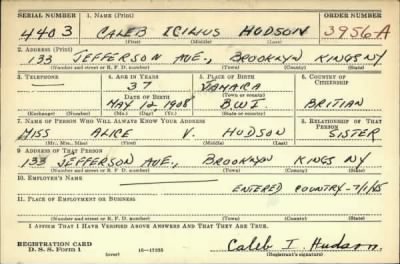 SERIAL NUMBER 1. NAME (Print) ORDER NUMBER
4403 CALEB ICILIUS HUDSON 3956A
(First) (Middle) (Last)
2. ADDRESS (Print)
133 JEFFERSON AVE., BROOKLYN KINGS NY
(Number and street or R. F. D. number) (Town) (County) (State)
3. TELEPHONE 4. AGE IN YEARS 5. PLACE OF BIRTH 6. COUNTRY OF CITIZENSHIP
37 JAMAICA
DATE OF BIRTH (Town or county)
MAY 12, 1908 B.W.I. BRITIAN
(Exchange) (Number) (Mo.) (Day) (Yr.) (State or country)
7. NAME OF PERSON WHO WILL ALWAYS KNOW YOUR ADDRESS 8. RELATIONSHIP OF THAT PERSON
MISS ALICE V. HUDSON SISTER
(Mr., Mrs., Miss) (First) (Middle) (Last)
9. ADDRESS OF THAT PERSON
133 JEFFERSON AVE., BROOKLYN KINGS NY
(Number and street or R. F. D. number) (Town) (County) (State)
10. EMPLOYER'S NAME
ENTERED COUNTRY - 7/1/45
11. PLACE OF EMPLOYMENT OR BUSINESS
(Number and street or R. F. D. number) (Town) (County) (State)
I AFFIRM THAT I HAVE VERIFIED ABOVE ANSWERS AND THAT THEY ARE TRUE.
REGISTRATION CARD
D. S. S. Form 1 (over) Caleb I. Hudson
(Registrant's signature)